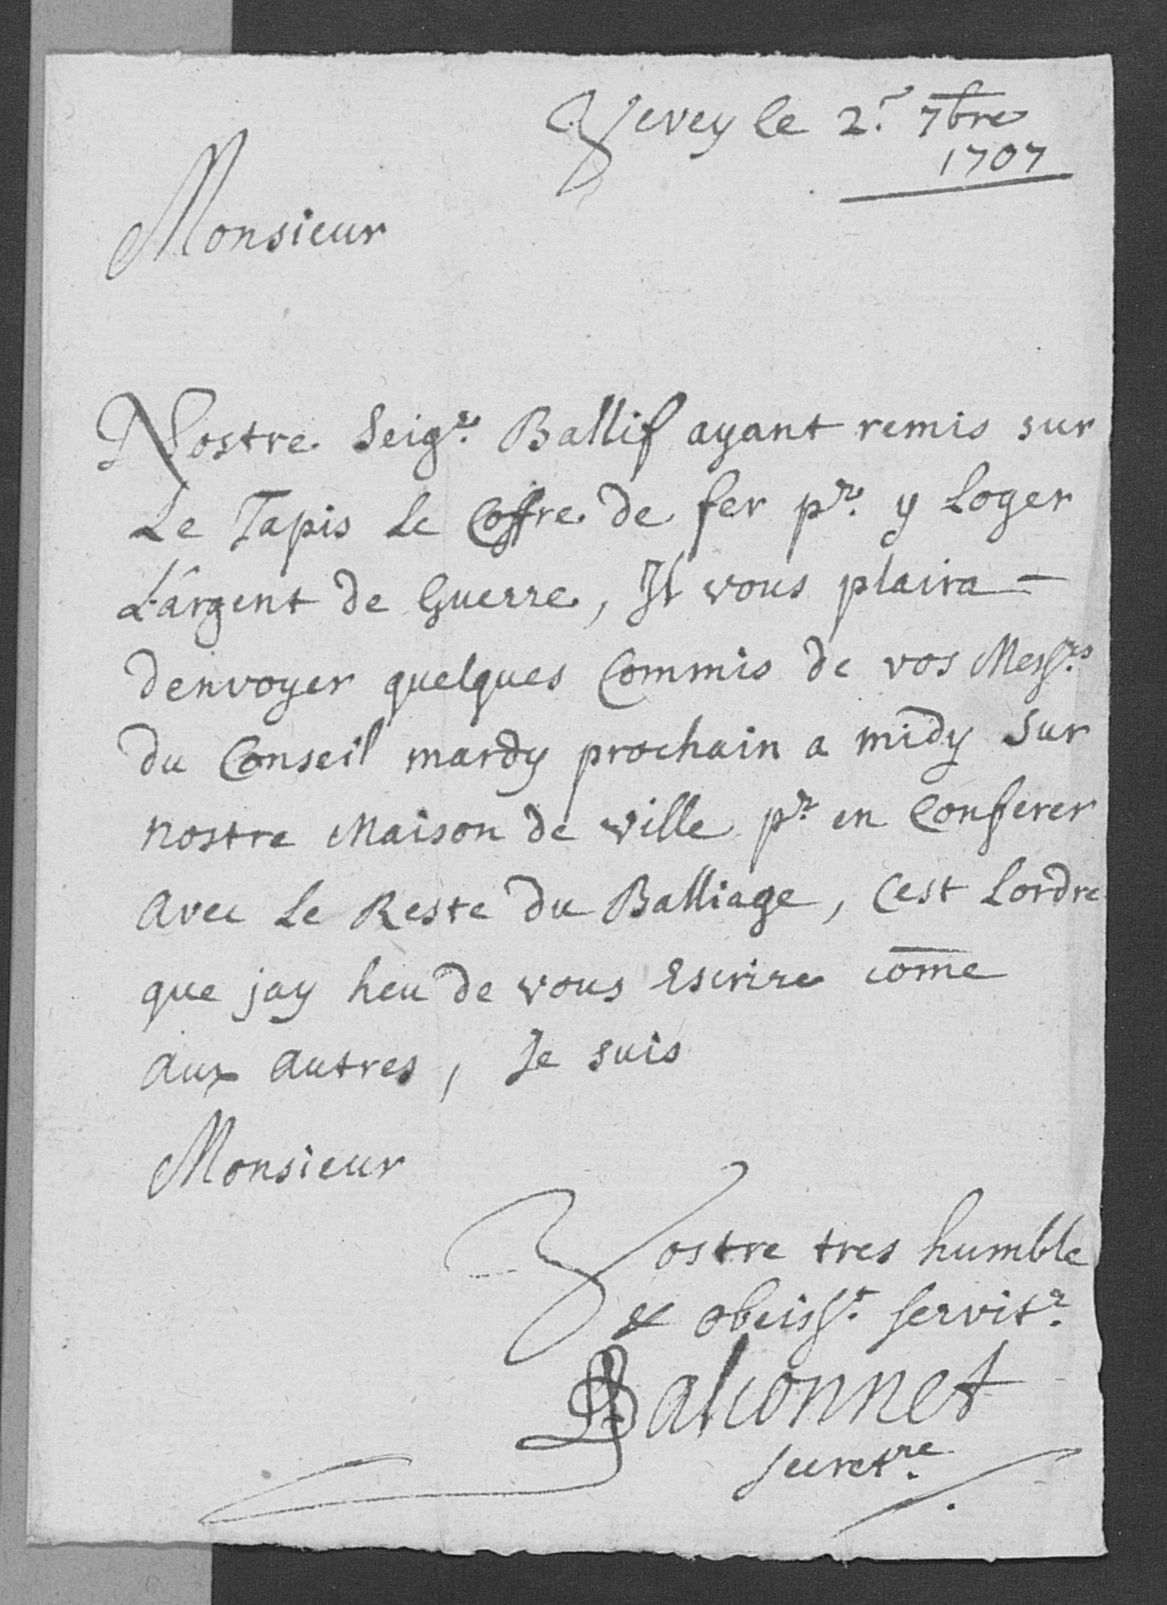 Vevey le 2.r 7bre
1707
Monsieur
Nostre Seigr. Ballif ayant remis sur
Le Tapis Le Coffre de fer pr. y Loger
L'argent de Guerre, Il vous plaira -
denvoyer quelques Commis de vos Messrs
du Conseil mardy prochain a midy Sur
nostre Maison de ville pr en Conferer
avec Le Reste du Balliage, Cest Lordre
que jay heu de vous Escrire come
aux autres, Je suis
Monsieur
Vostre tres humble
& obeisst. servitr.
Balconnet
secretre.